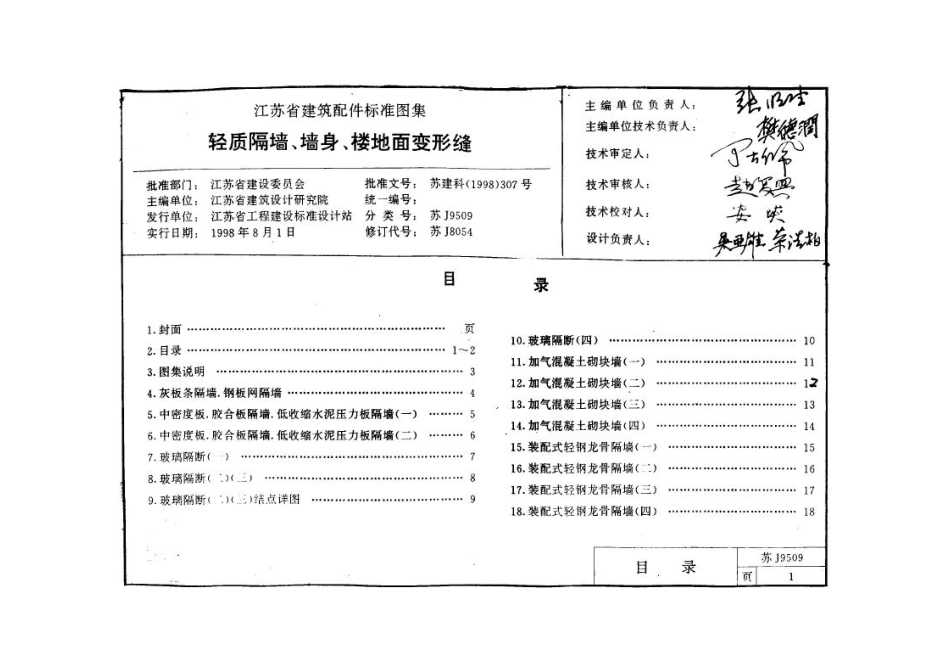 江苏省建筑配件标准图集
轻质隔墙、墙身、楼地面变形缝
批准部门： 江苏省建设委员会 批准文号： 苏建科(1998)307号
主编单位： 江苏省建筑设计研究院 统一编号：
发行单位： 江苏省工程建设标准设计站 分类号： 苏J9509
实行日期： 1998年8月1日 修订代号： 苏J8054
主编单位负责人：
主编单位技术负责人： 樊德润
技术审定人：
技术审核人：
技术校对人：
设计负责人：
目 录
1.封面 …… 页
2.目录 …… 1～2
3.图集说明 …… 3
4.灰板条隔墙.钢板网隔墙 …… 4
5.中密度板.胶合板隔墙.低收缩水泥压力板隔墙(一) …… 5
6.中密度板.胶合板隔墙.低收缩水泥压力板隔墙(二) …… 6
7.玻璃隔断(一) …… 7
8.玻璃隔断(二)(三) …… 8
9.玻璃隔断(二)(三)结点详图 …… 9
10.玻璃隔断(四) …… 10
11.加气混凝土砌块墙(一) …… 11
12.加气混凝土砌块墙(二) …… 12
13.加气混凝土砌块墙(三) …… 13
14.加气混凝土砌块墙(四) …… 14
15.装配式轻钢龙骨隔墙(一) …… 15
16.装配式轻钢龙骨隔墙(二) …… 16
17.装配式轻钢龙骨隔墙(三) …… 17
18.装配式轻钢龙骨隔墙(四) …… 18
目 录
苏J9509
页 1